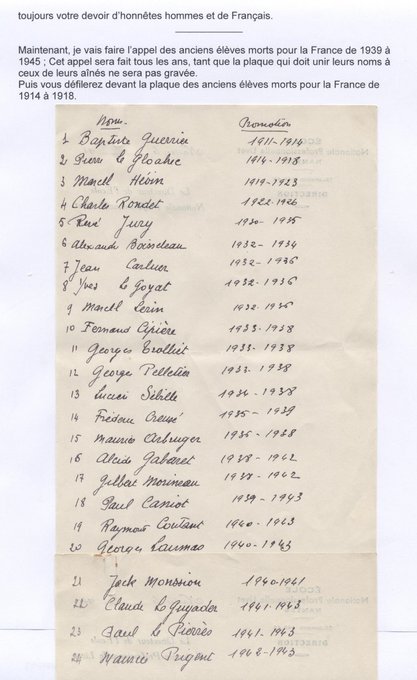 toujours votre devoir d'honnêtes hommes et de Français.
Maintenant, je vais faire l'appel des anciens élèves morts pour la France de 1939 à
1945 ; Cet appel sera fait tous les ans, tant que la plaque qui doit unir leurs noms à
ceux de leurs aînés ne sera pas gravée.
Puis vous défilerez devant la plaque des anciens élèves morts pour la France de
1914 à 1918.
Noms Promotion
1 Baptiste Guerrier 1911-1914
2 Pierre Le Gloahec 1914-1918
3 Marcel Hévin 1919-1923
4 Charles Rondet 1922-1926
5 René Jury 1930-1935
6 Alexandre Boisdeau 1932-1934
7 Jean Carluer 1932-1936
8 Yves Le Goyat 1932-1936
9 Marcel Lerin 1932-1936
10 Fernand Cipière 1933-1938
11 Georges Trolliet 1933-1938
12 Georges Pelletier 1933-1938
13 Lucien Sébille 1934-1938
14 Frédéric Creusé 1935-1939
15 Maurice 1936-1938
16 Alcide Gabaret 1938-1942
17 Gilbert Morineau 1938-1942
18 Paul Caniot 1939-1943
19 Raymond Coutant 1940-1943
20 Georges Laumas 1940-1943
21 Jack Monsion 1940-1941
22 Claude Le Guyader 1941-1943
23 Paul Le Pierrès 1941-1943
24 Maurice Prigent 1942-1943